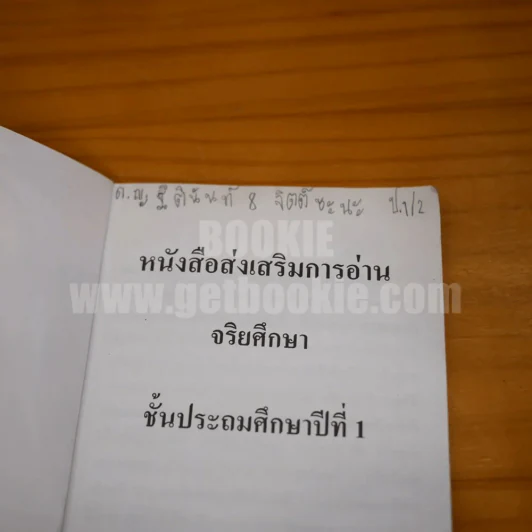 ด.ญ. ฐิตินันท์ 8 จิตต์ชะนะ ป.1/2
BOOKIE
หนังสือส่งเสริมการอ่าน
www.getbookie.com
จริยศึกษา
ชั้นประถมศึกษาปีที่ 1